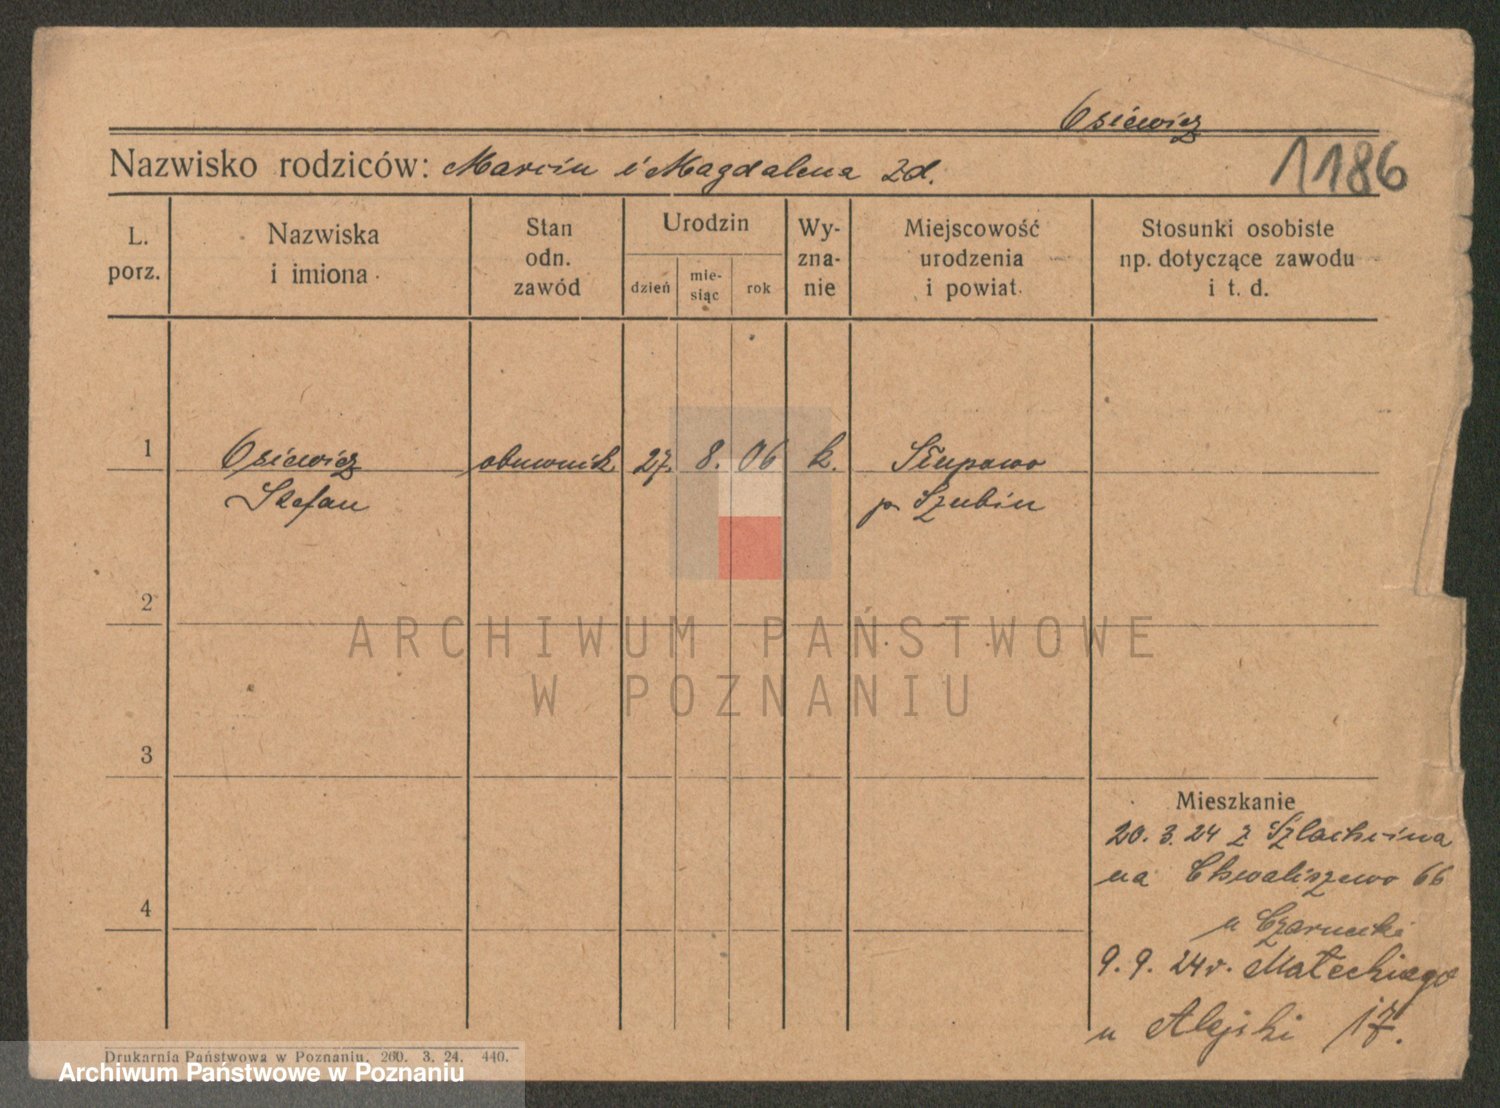 Osiewicz
Nazwisko rodziców: Marcin i Magdalena zd.
1186
L. porz.
Nazwiska i imiona
Stan odn. zawód
Urodzin
dzień
mie-siąc
rok
Wy-zna-nie
Miejscowość urodzenia i powiat
Stosunki osobiste np. dotyczące zawodu i t. d.
1
Osiewicz obuwnik. 27. 8. 06 k. Słupowo
Stefan p. Szubin
2
ARCHIWUM PAŃSTWOWE
W POZNANIU
3
Mieszkanie
20. 3. 24 z Szlachcina
na Chwaliszewo 66
4
u Czarnecki
9. 9. 24 r. Małeckiego
u Alejski 17.
Drukarnia Państwowa w Poznaniu. 260. 3. 24. 440.
Archiwum Państwowe w Poznaniu